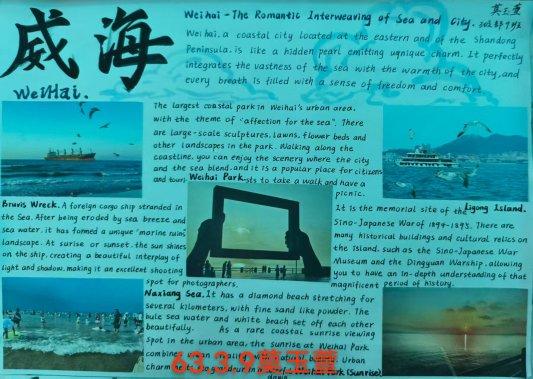 威海
WeiHai.
Weihai - The Romantic Interweaving of Sea and City.
Weihai, a coastal city located at the eastern end of the Shandong
Peninsula, is like a hidden pearl emitting uqnique charm. It perfectly
integrates the vastness of the sea with the warmth of the city, and
every breath is filled with a sense of freedom and comfort.
The largest coastal park in Weihai's urban area,
with the theme of "affection for the sea". There
are large-scale sculptures, lawns, flower beds and
other landscapes in the park. Walking along the
coastline, you can enjoy the scenery where the city
and the sea blend, and it is a popular place for citizens
and touri
Weihai Park.
sts to take a walk and have a
picnic.
Bruvis Wreck. A foreign cargo ship stranded in
the Sea. After being eroded by sea breeze and
sea water, it has formed a unique "marine ruin"
landscape. At surise or sunset, the sun shines
on the ship, creating a beautiful interplay of
light and shadow, making it an excellent shooting
spot for photographers.
Ligong Island.
It is the memorial site of the
Sino-Japanese War of 1894-1895. There are
many historical buildings and cultural relics on
the Island, such as the Sino-Japanese War
Museum and the Dingyuan Warship, allowing
you to have an in-depth understanding of that
magnificent period of history.
Naxiang Sea. It has a diamond beach stretching for
several kilometers, with fine sand like powder. The
bule sea water and white beach set off each other
beautifully. As a rare coastal sunrise viewing
spot in the urban area, the sunrise at Weihai Park
combin
Urban
charm
Weihai Park (Sunrise)
63.3.9